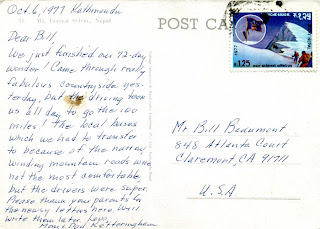 Oct. 6, 1977 Kathmandu
Mt. Everest Nepal
POST CARD
Dear Bill,
We just finished our 72-day
wonder! Came through really
fabulous countryside yes-
terday, but the driving took
us all day to go the 100
miles! The local buses
which we had to transfer
to because of the narrow
winding mountain roads were
not the most comfortable
but the drivers were super.
Please thank your parents for
the newsy letters here. Will
write them later. Love,
Mom & Dad Ketteringham
1.25
Mr. Bill Beaumont
848 Atlanta Court
Claremont, CA 91711
U.S.A